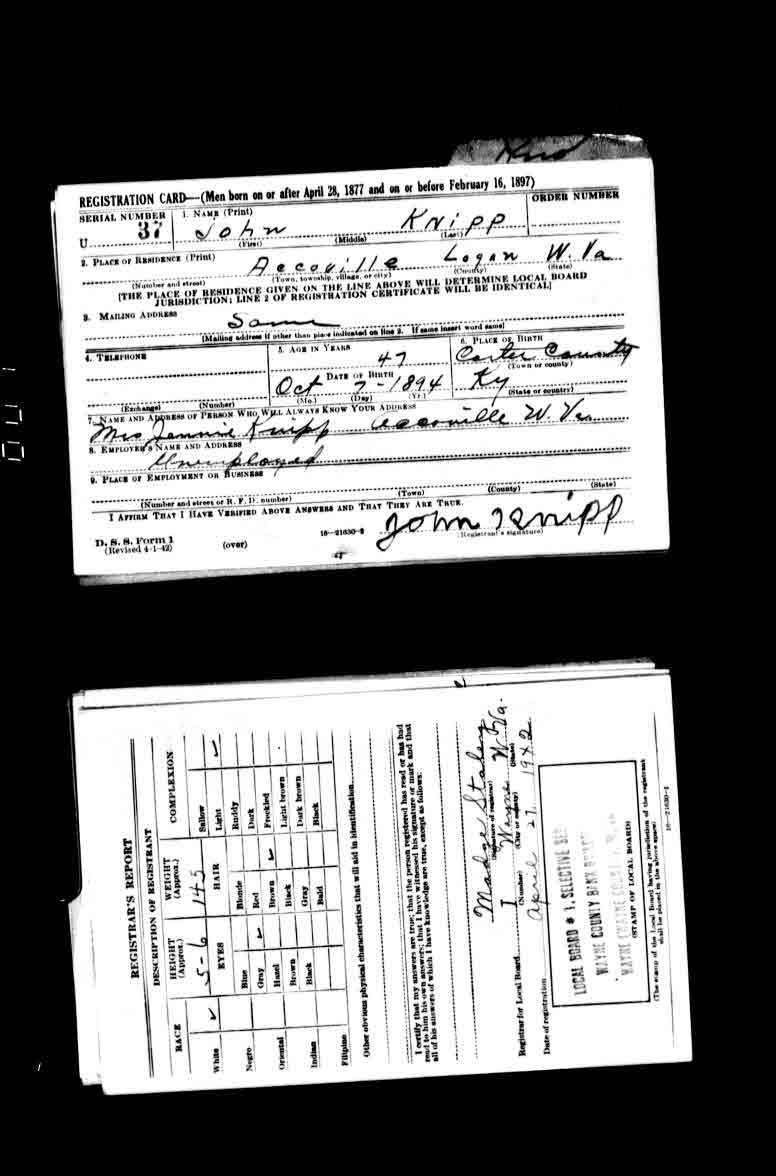 REGISTRATION CARD—(Men born on or after April 28, 1877 and on or before February 16, 1897)
SERIAL NUMBER
U 37
1. NAME (Print)
John Knipp
(First) (Middle) (Last)
ORDER NUMBER
2. PLACE OF RESIDENCE (Print)
Accoville Logan W. Va
(Number and street) (Town, township, village, or city) (County) (State)
[THE PLACE OF RESIDENCE GIVEN ON THE LINE ABOVE WILL DETERMINE LOCAL BOARD
JURISDICTION; LINE 2 OF REGISTRATION CERTIFICATE WILL BE IDENTICAL]
3. MAILING ADDRESS
Same
[Mailing address if other than place indicated on line 2. If same insert word same]
4. TELEPHONE
(Exchange) (Number)
5. AGE IN YEARS
47
DATE OF BIRTH
Oct 7 - 1894
(Mo.) (Day) (Yr.)
6. PLACE OF BIRTH
Carter County
(Town or county)
Ky
(State or country)
7. NAME AND ADDRESS OF PERSON WHO WILL ALWAYS KNOW YOUR ADDRESS
Mrs Jennie Knipp Accoville W. Va
8. EMPLOYER'S NAME AND ADDRESS
Unemployed
9. PLACE OF EMPLOYMENT OR BUSINESS
(Number and street or R. F. D. number) (Town) (County) (State)
I AFFIRM THAT I HAVE VERIFIED ABOVE ANSWERS AND THAT THEY ARE TRUE.
John Knipp
(Registrant's signature)
D. S. S. Form 1
(Revised 4-1-42) (over) 16—21630-2
REGISTRAR'S REPORT
DESCRIPTION OF REGISTRANT
RACE
HEIGHT
(Approx.)
5-6
WEIGHT
(Approx.)
145
COMPLEXION
EYES
HAIR
White ✓
Negro
Oriental
Indian
Filipino
Blue
Gray ✓
Hazel
Brown
Black
Blonde
Red
Brown ✓
Black
Gray
Bald
Sallow
Light ✓
Ruddy
Dark
Freckled
Light brown
Dark brown
Black
Other obvious physical characteristics that will aid in identification
I certify that my answers are true; that the person registered has read or has had
read to him his own answers; that I have witnessed his signature or mark and that
all of his answers of which I have knowledge are true, except as follows:
Madge Staley
(Signature of registrar)
Registrar for Local Board I Wayne W. Va.
(Number) (City or county) (State)
Date of registration April 27 1942
LOCAL BOARD # 1, SELECTIVE
WAYNE COUNTY BANK
WAYNE
(STAMP OF LOCAL BOARD)
(The stamp of the Local Board having jurisdiction of the registrant
shall be placed in the above space)
16—21630-1